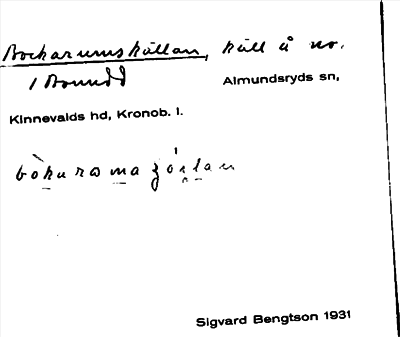 Bockarumskällan, käll å no.
1 Brunudd
Almundsryds sn,
Kinnevalds hd, Kronob. l.
Sigvard Bengtson 1931